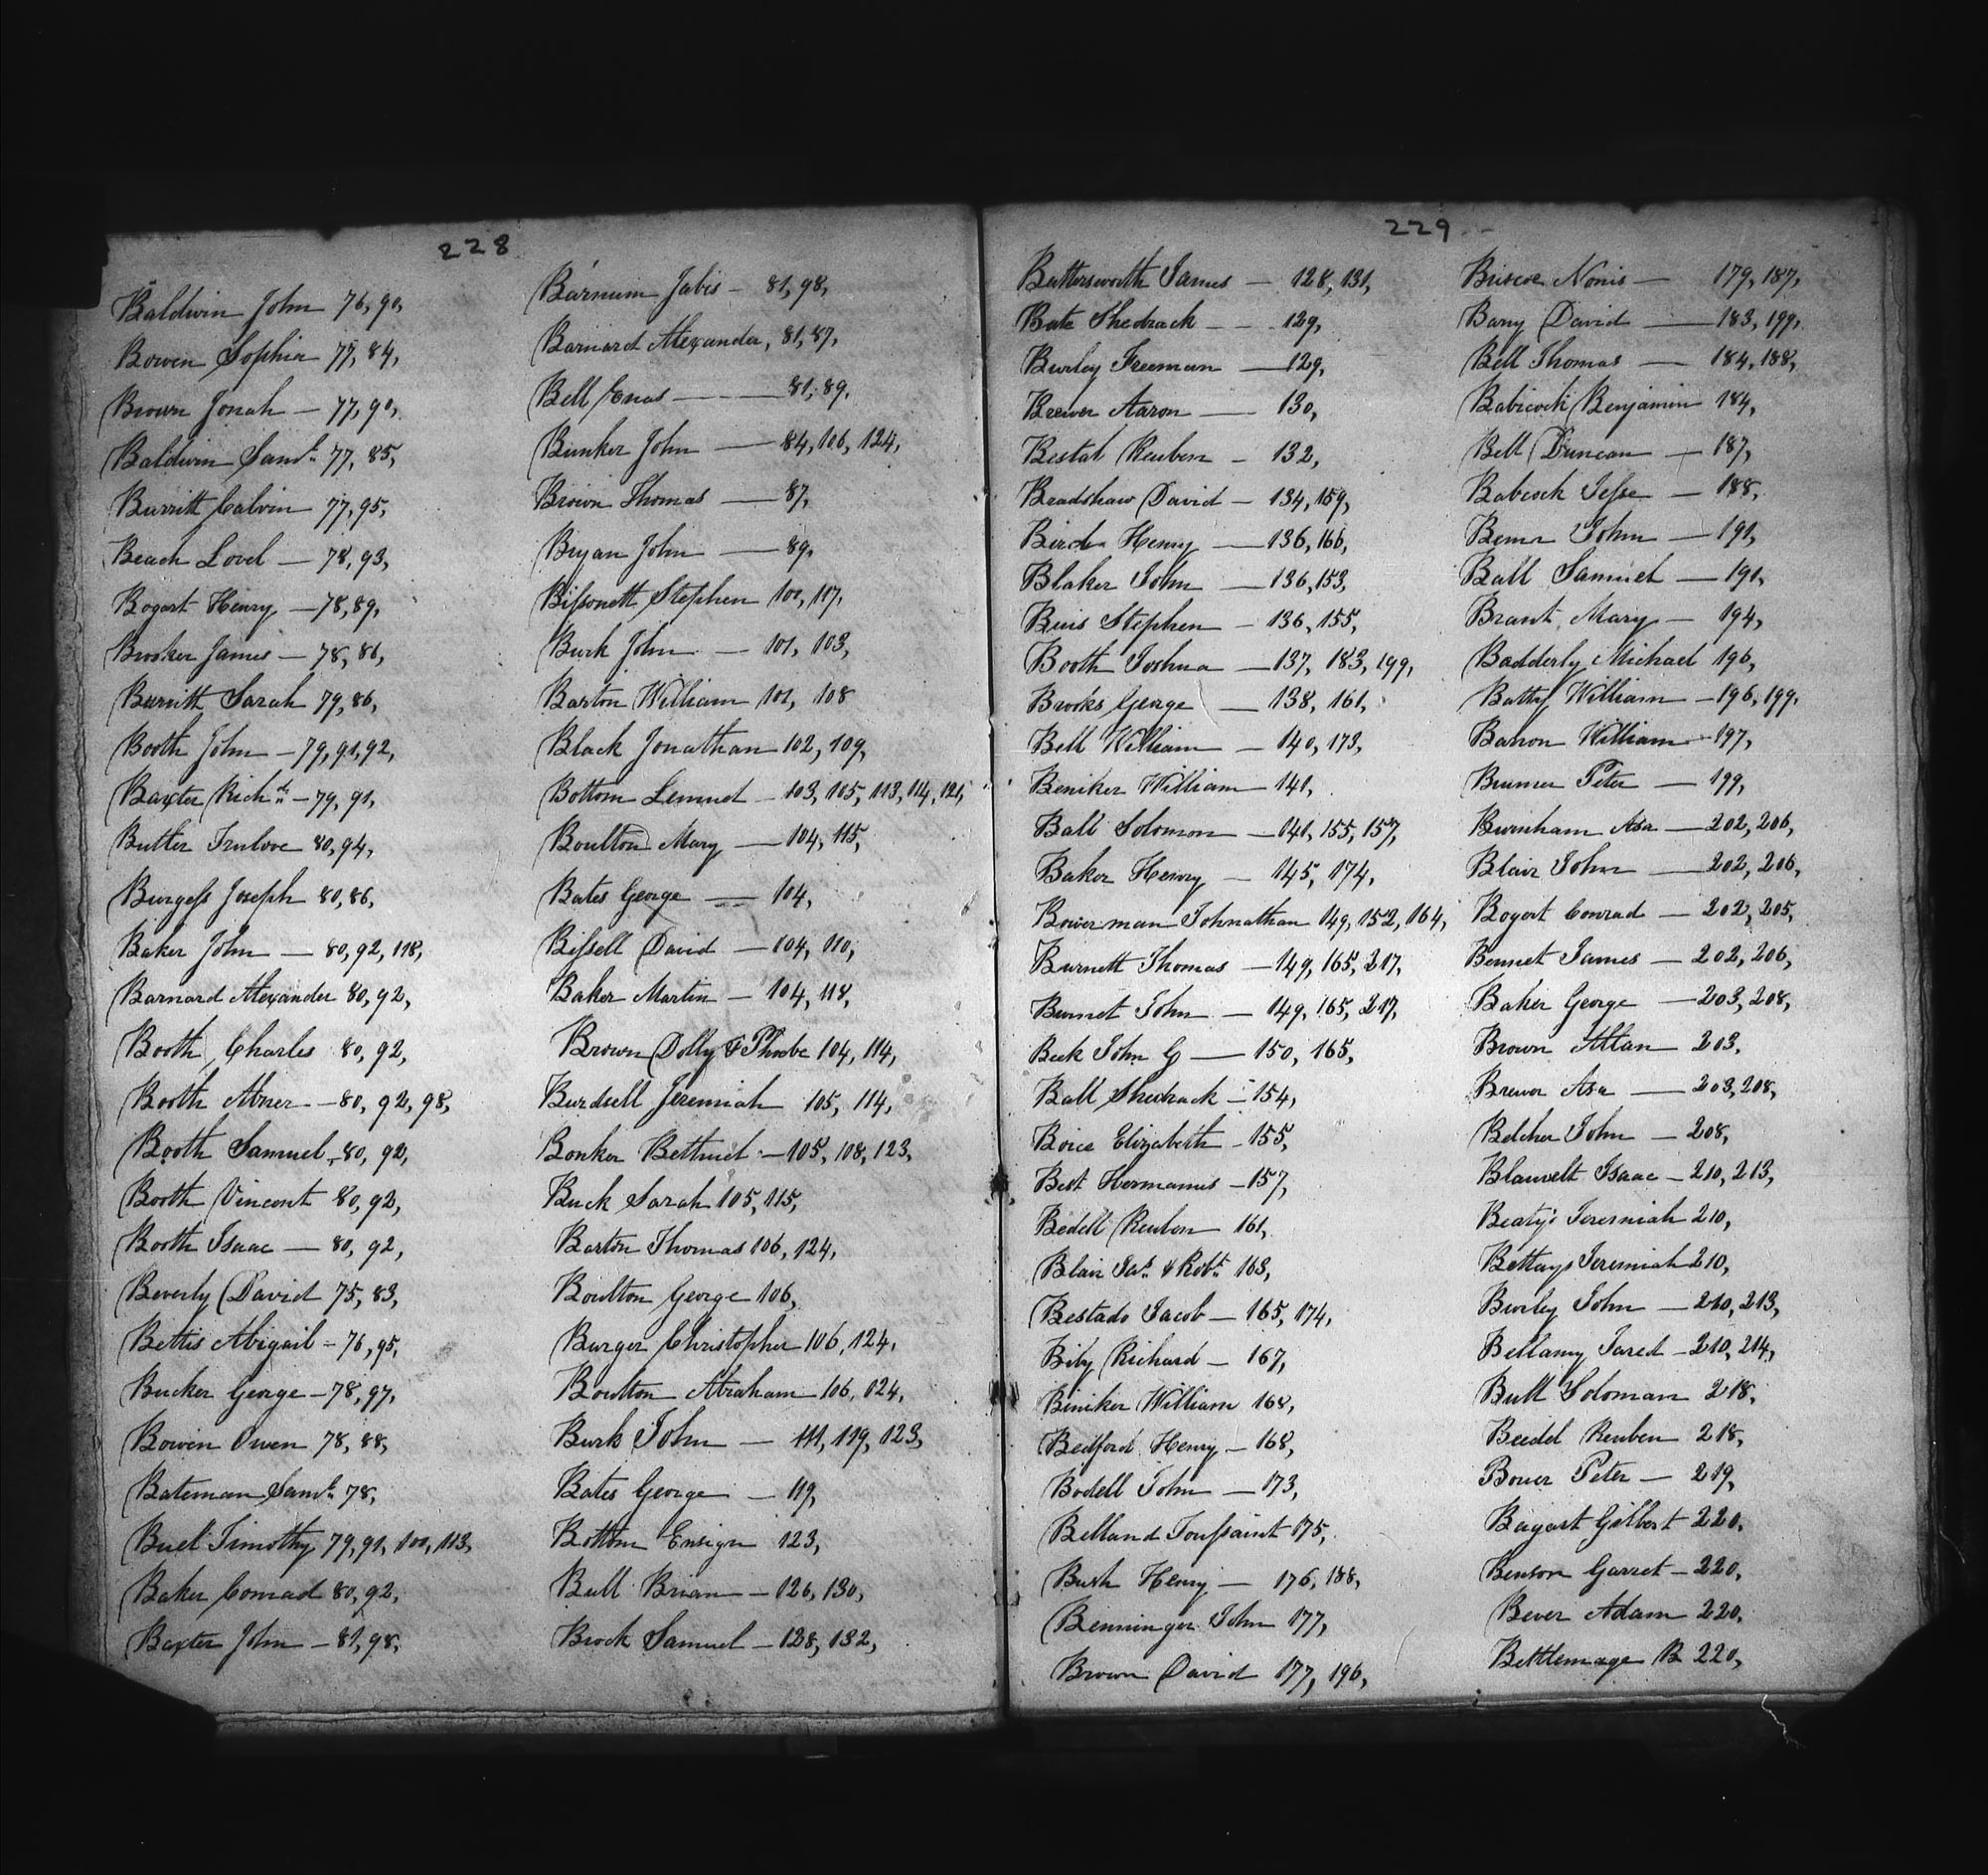 228
Baldwin John 76, 90,
Bowen Sophia 77, 84,
Brown Jonah — 77, 90,
Baldwin Saml. 77, 85,
Burritt Calvin 77, 95,
Beach Lovel — 78, 93,
Bogart Henry — 78, 89,
Brooker James — 78, 86,
Burritt Sarah 79, 86,
Booth John — 79, 91, 92,
Baxter Richd. — 79, 91,
Butler Trulove 80, 94,
Burgess Joseph 80, 86,
Baker John — 80, 92, 118,
Barnard Alexander 80, 92,
Booth Charles 80, 92,
Booth Abner — 80, 92, 98,
Booth Samuel — 80, 92,
Booth Vincent 80, 92,
Booth Isaac — 80, 92,
Beverly David 75, 83,
Bettis Abigail — 76, 95,
Bucker George — 78, 97,
Bowen Owen 78, 88,
Bateman Saml. 78,
Buel Timothy 79, 91, 100, 113,
Baker Conrad 80, 92,
Baxter John — 81, 98,
Barnum Jabis — 81, 98,
Barnard Alexander, 81, 87,
Bell Enos — 81, 89,
Bunker John — 84, 106, 124,
Brown Thomas — 87,
Bryan John — 89,
Bissonett Stephen 100, 107,
Burk John — 101, 103,
Barton William 101, 108
Black Jonathan 102, 109,
Bottom Lemuel — 103, 105, 113, 114, 121,
Boulton Mary — 104, 115,
Bates George — 104,
Bissell David — 104, 110,
Baker Martin — 104, 118,
Brown Dolly & Phoebe 104, 114,
Burdsell Jeremiah 105, 114,
Bonker Bethuel — 105, 108, 123,
Buck Sarah 105, 115,
Barton Thomas 106, 124,
Boulton George 106,
Burger Christopher 106, 124,
Boulton Abraham 106, 124,
Burk John — 111, 119, 123,
Bates George — 119,
Bottom Ensign 123,
Bull Brian — 126, 130,
Brock Samuel — 128, 132,
229
Buttersworth James — 128, 131,
Bate Shedrack — 129,
Burley Freeman — 129,
Brewer Aaron — 130,
Bestal Reuben — 132,
Bradshaw David — 134, 159,
Bird Henry — 136, 166,
Blaker John — 136, 153,
Buis Stephen — 136, 155,
Booth Joshua — 137, 183, 199,
Brooks George — 138, 161,
Bell William — 140, 173,
Beniker William — 141,
Ball Solomon — 141, 155, 157,
Baker Henry — 145, 174,
Bowerman Johnathan 149, 152, 164,
Burnett Thomas — 149, 165, 217,
Burnet John — 149, 165, 217,
Beek John G — 150, 165,
Ball Shedrack — 154,
Boice Elizabeth — 155,
Best Hermanus — 157,
Bedell Reuben 161,
Blair Jas. & Robt. 163,
Bestado Jacob — 165, 174,
Biby Richard — 167,
Biniker William 168,
Bedford Henry — 168,
Bodell John — 173,
Belland Toussaint 175,
Bush Henry — 176, 188,
Benninger John 177,
Brown David 177, 196,
Briscoe Norris — 179, 187,
Barry David — 183, 199,
Bell Thomas — 184, 188,
Babicock Benjamin 184,
Bell Duncan — 187,
Babcock Jesse — 188,
Bemr John — 191,
Ball Samuel — 191,
Brant Mary — 194,
Badderly Michael 196,
Batty William — 196, 199,
Barron William — 197,
Brunner Peter — 199,
Burnham Asa — 202, 206,
Blair John — 202, 206,
Bogert Conrad — 202, 205,
Bennet James — 202, 206,
Baker George — 203, 208,
Brown Allan — 203,
Brewer Asa — 203, 208,
Belcher John — 208,
Blauvelt Isaac — 210, 213,
Beatys Jeremiah 210,
Bettays Jeremiah 210,
Burley John — 210, 213,
Bellamy Jared — 210, 214,
Bull Soloman 218,
Beedel Reuben 218,
Bower Peter — 219,
Bagart Gilbert 220,
Benson Garret — 220,
Bever Adam 220,
Bettlemage B 220,